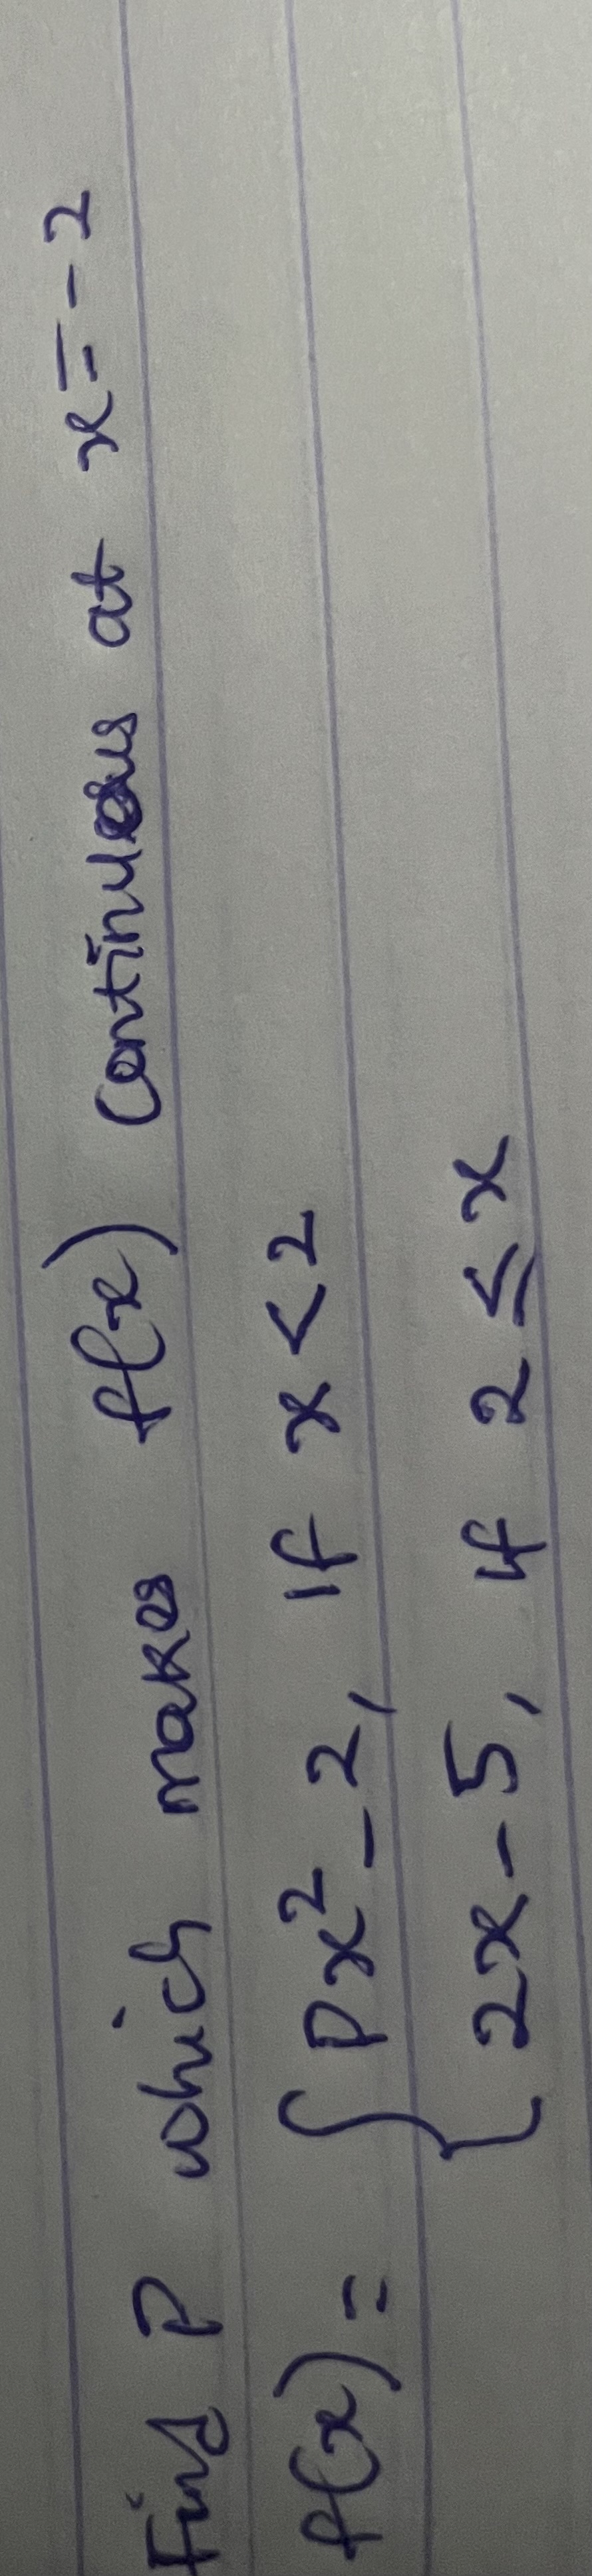 Find P which makes f(x) continuous at x = - 2
f(x) = { Px² - 2, if x < 2
2x - 5, if 2 ≤ x